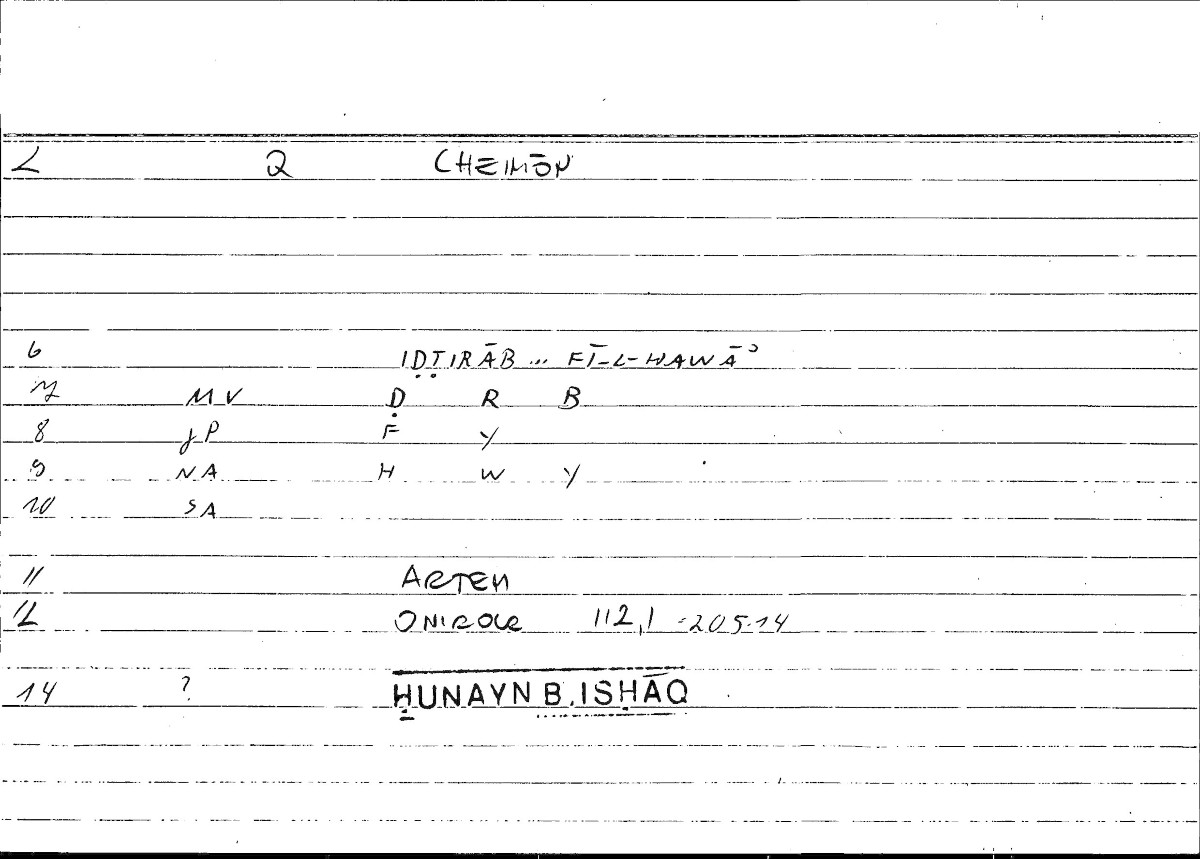 2 Q CHEIMŌN
6 IḌṬIRĀB ... FĪ-L-HAWĀʾ
7 MV Ḍ R B
8 JP F Y
9 NA H W Y
10 SA
11 ARTEM
12 ONIROCR 112,1 - 205.14
14 ? ḤUNAYN B. ISḤĀQ